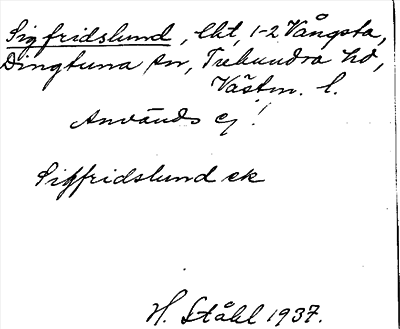 Sigfridslund, lht, 1-2 Vångsta,
Dingtuna sn, Tuhundra hd,
Västm. l.
Används ej!
Sigfridslund ek
H. Ståhl 1937.